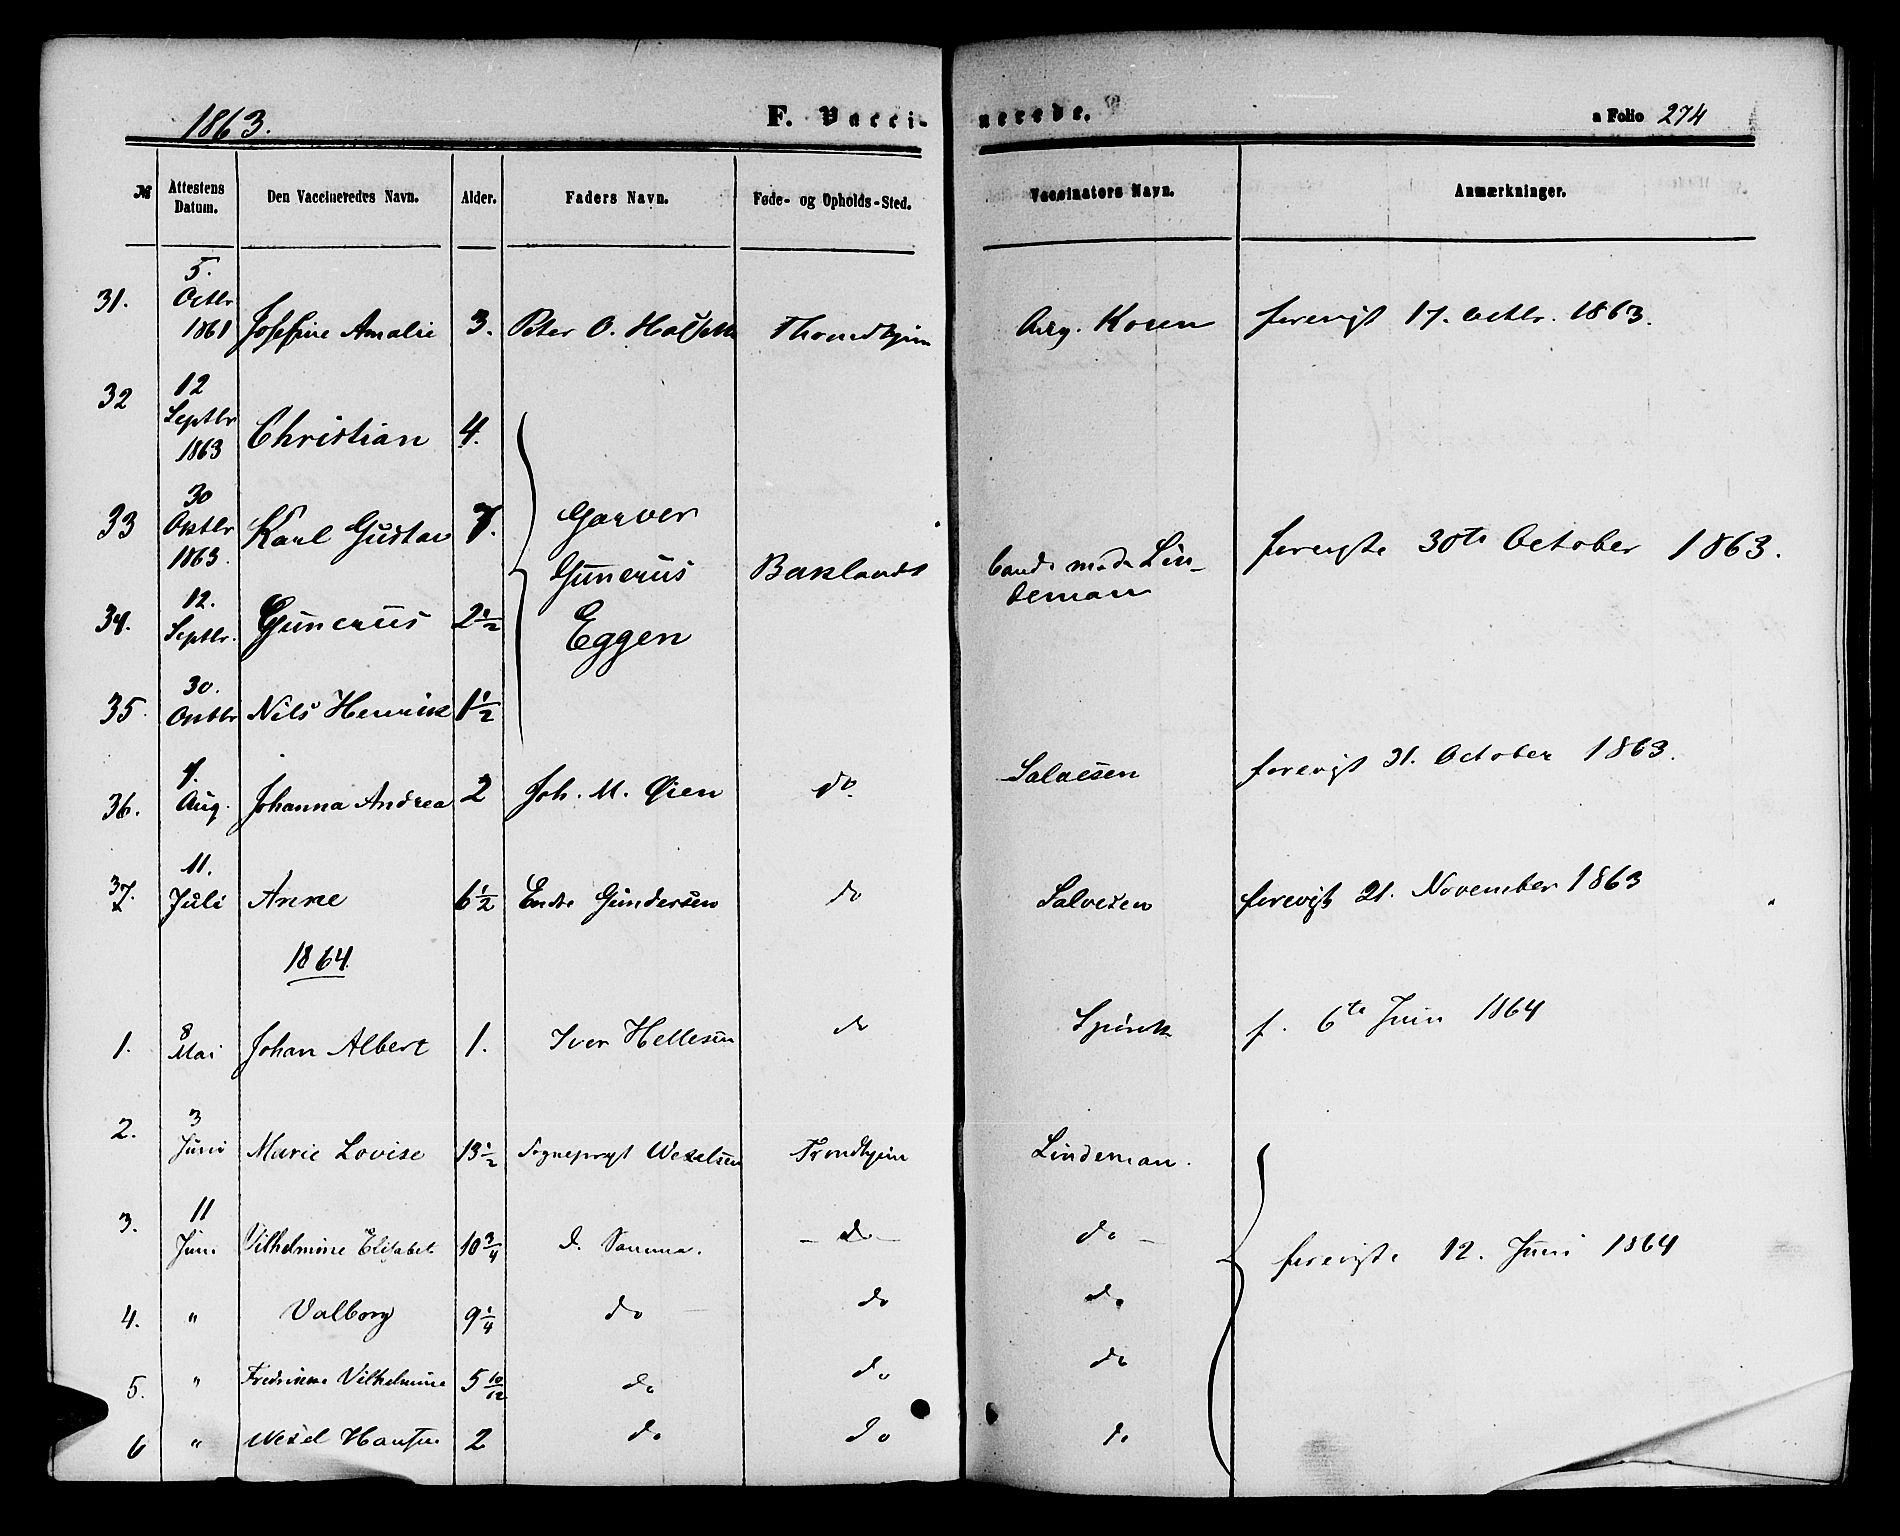 1863.
F. Vaccinerede.
a Folio 274
№ Attestens Datum. Den Vaccineredes Navn. Alder. Faders Navn. Føde- og Opholds-Sted. Vaccinators Navn. Anmærkninger.
31. 5. Octbr 1861 Josefine Amalie 3. Peter O. Throndhjem Aug. Koren forevist 17. Octbr. 1863.
32 12 Septbr 1863 Christian 4.
33 30 Oktbr 1863. Karl Gustav 7. Garver Gunerus Eggen Baklandt Cand. Lindeman foreviste 30te October 1863.
34. 12. Septbr. Gunerus 2 1/2
35. 30. Oktbr Nils Henrik 1 1/2
36. 7. Aug. Johanna Andrea 2 Joh. M. Øien do. Salvesen forevist 31. October 1863.
37. 11. Juli Anne 6 1/2 Endre Gundersen do Salvesen forevist 21. November 1863
1864.
1. 8 Mai Johan Albert 1. Iver Hellesen do Spørck f. 6te Juni 1864
2. 3 Juni Marie Lovise 13 1/2 Sogneprest Wexelsen Trondhjem Lindeman.
3. 11 Juni Vilhelmine Elisabet 10 3/4 d. Samme. - do - do - foreviste 12. Juni 1864
4. " Valborg 9 1/4 do do do
5. " Fredrikke Vilhelmine 5 10/12 do do do
6 " Wexel Hansen 2 do do do